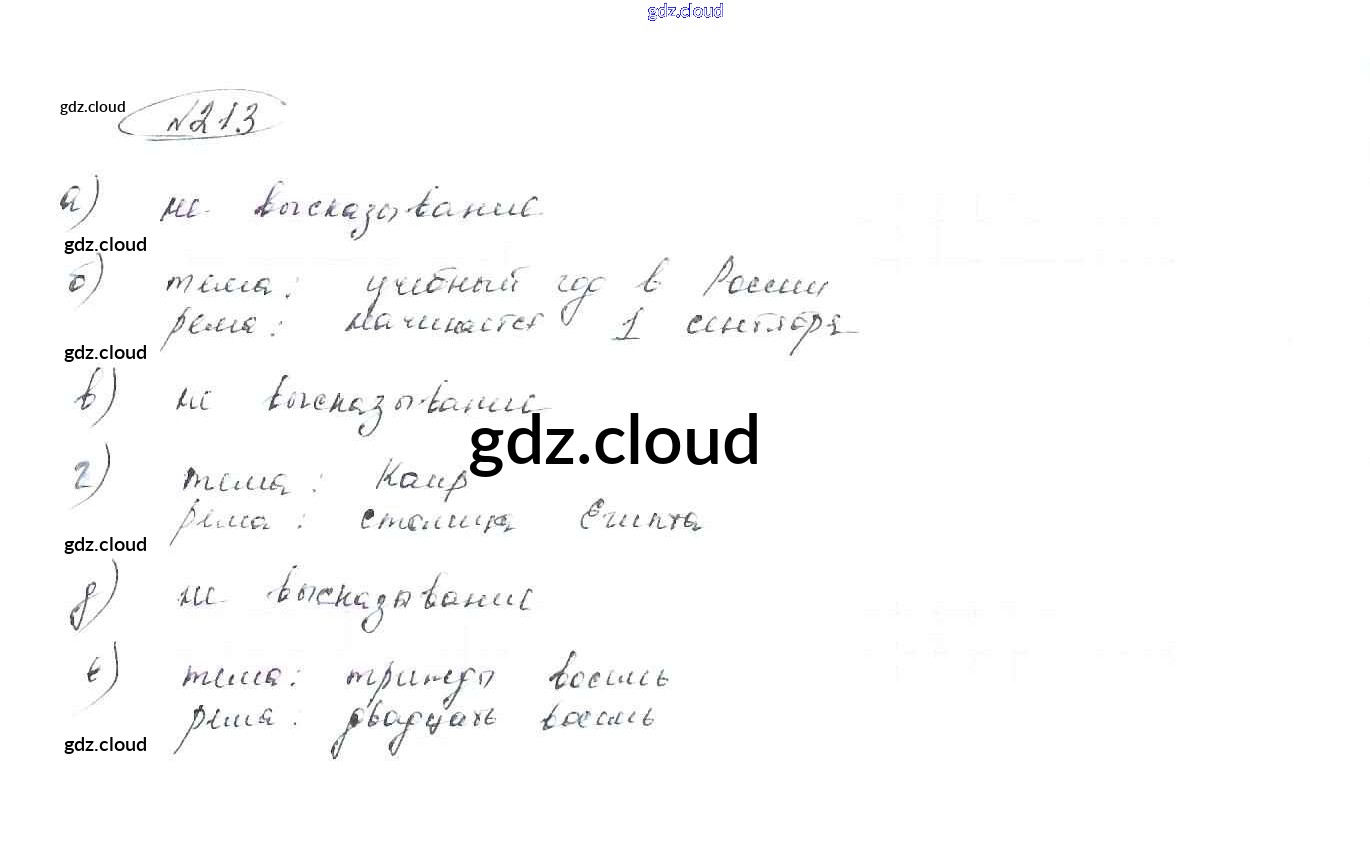 gdz.cloud
gdz.cloud
№213
а) не высказывание
gdz.cloud
б) тема: учебный год в России
рема: начинается 1 сентября
gdz.cloud
в) не высказывание
gdz.cloud
г) тема: Каир
рема: столица Египта
gdz.cloud
д) не высказывание
е) тема: трижды восемь
рема: двадцать восемь
gdz.cloud